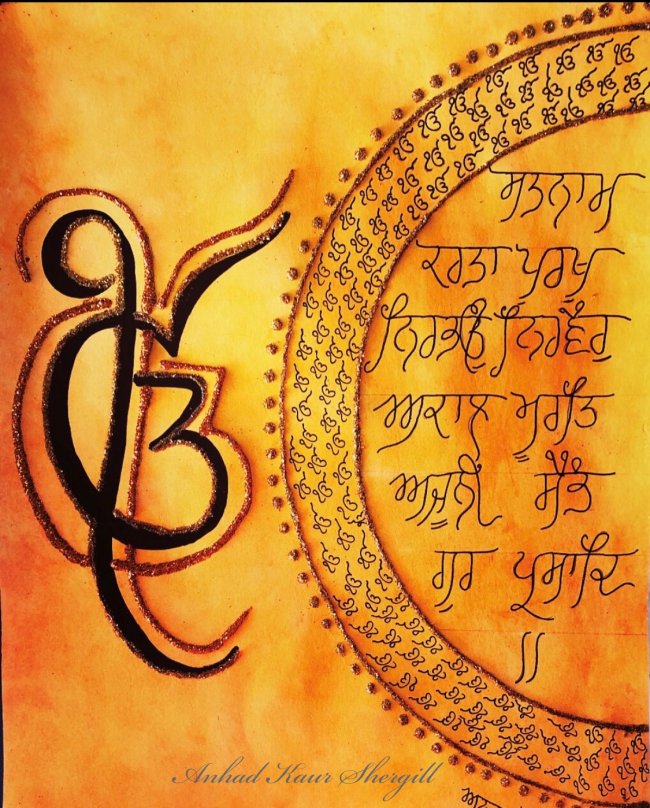 ੴ
ਸਤਨਾਮ
ਕਰਤਾ ਪੁਰਖੁ
ਨਿਰਭਉ ਨਿਰਵੈਰੁ
ਅਕਾਲ ਮੂਰਤਿ
ਅਜੂਨੀ ਸੈਭੰ
ਗੁਰ ਪ੍ਰਸਾਦਿ
॥
Anhad Kaur Shergill